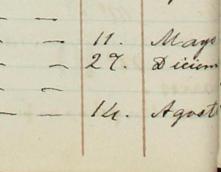 — — 11. Mayo
— — 27. Diciem
— —
— — 14. Agost